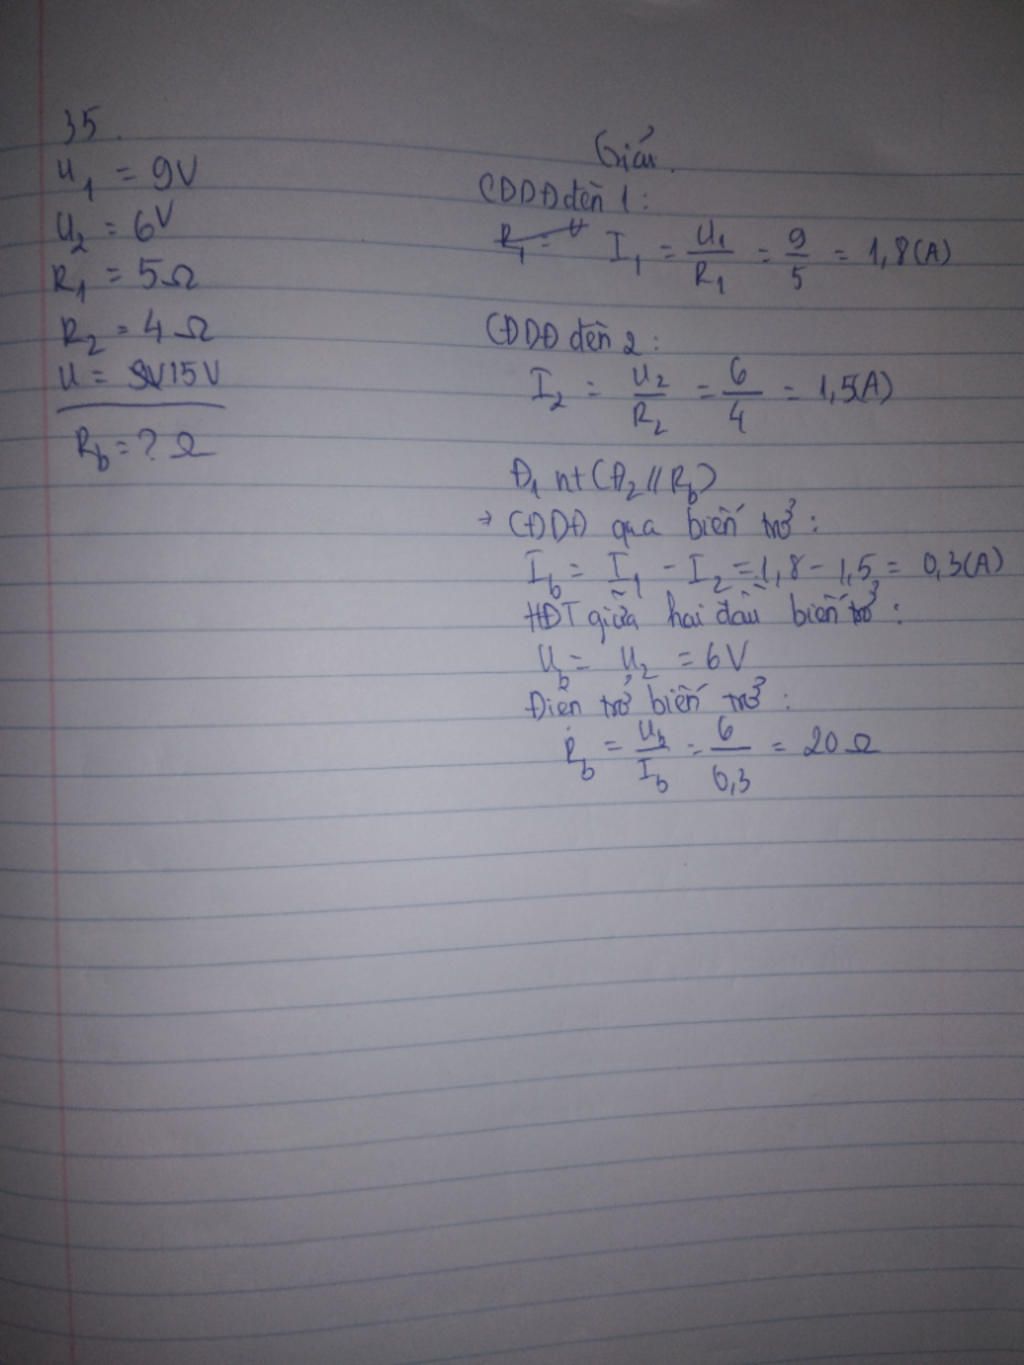 35.
U₁ = 9V
U₂ = 6V
R₁ = 5Ω
R₂ = 4Ω
U = 15V
R_b = ? Ω
Giải.
CĐDĐ đèn 1:
I₁ = U₁/R₁ = 9/5 = 1,8(A)
CĐDĐ đèn 2:
I₂ = U₂/R₂ = 6/4 = 1,5(A)
Đ₁ nt (Đ₂ // R_b)
→ CĐDĐ qua biến trở:
I_b = I₁ - I₂ = 1,8 - 1,5 = 0,3(A)
HĐT giữa hai đầu biến trở:
U_b = U₂ = 6V
Điện trở biến trở:
R_b = U_b/I_b = 6/0,3 = 20Ω